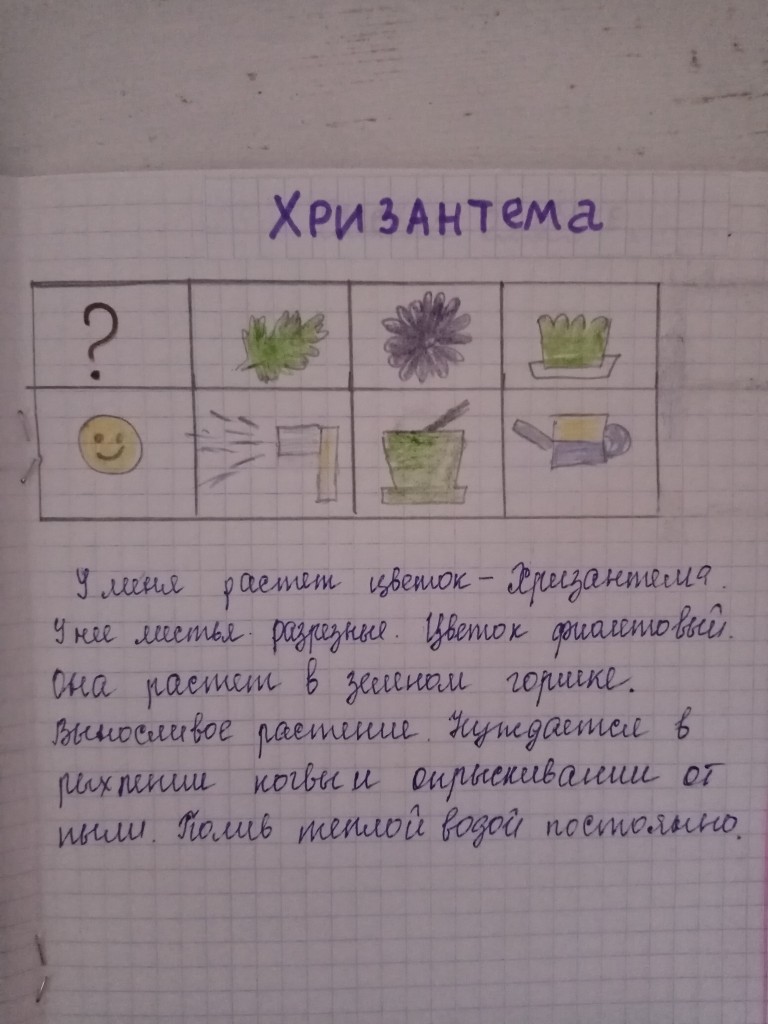 Хризантема
?
У меня растет цветок – Хризантема.
У нее листья разрезные. Цветок фиолетовый.
Она растет в зеленом горшке.
Выносливое растение. Нуждается в
рыхлении почвы и опрыскивании от
пыли. Полив теплой водой постоянно.